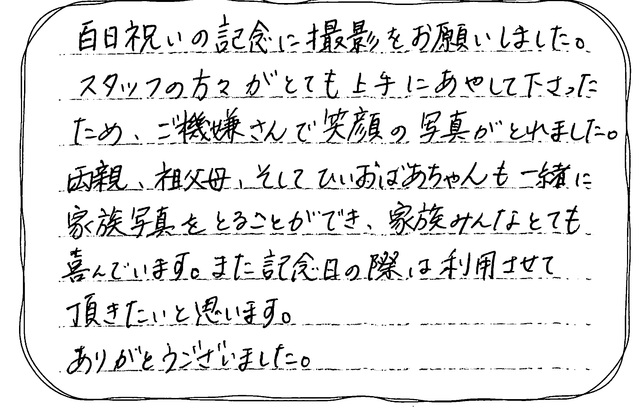 百日祝いの記念に撮影をお願いしました。
スタッフの方々がとても上手にあやして下さった
ため、ご機嫌さんで笑顔の写真がとれました。
両親、祖父母、そしてひいおばあちゃんも一緒に
家族写真をとることができ、家族みんなとても
喜んでいます。また記念日の際は利用させて
頂きたいと思います。
ありがとうございました。